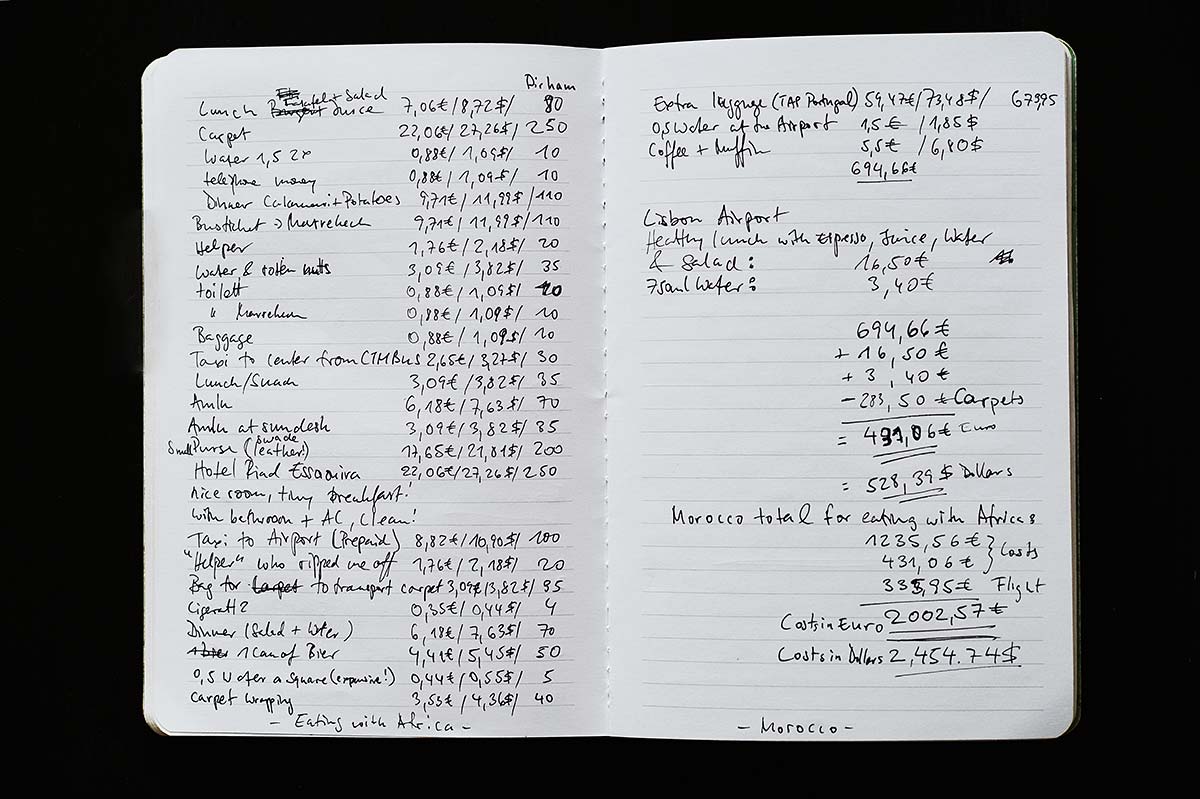 Dirham
Salad
Lunch Juice 7,06€/8,72$/ 80
Carpet 22,06€/27,26$/ 250
Water 1,5 2x 0,88€/1,09$/ 10
telephone money 0,88€/1,09$/ 10
Dinner Calamari + Potatoes 9,71€/11,99$/110
Busticket → Marrakech 9,71€/11,99$/110
Helper 1,76€/2,18$/ 20
Water & rotten nuts 3,09€/3,82$/ 35
toilett 0,88€/1,09$/ 10
" Marrakech 0,88€/1,09$/ 10
Baggage 0,88€/1,09$/ 10
Taxi to center from CTM Bus 2,65€/3,27$/ 30
Lunch/Snack 3,09€/3,82$/ 35
6,18€/7,63$/ 70
at 3,09€/3,82$/ 35
Small Purse (swade leather!) 17,65€/21,81$/ 200
Hotel Riad Essaouira 22,06€/27,26$/250
nice room, tiny breakfast!
with bathroom + AC, Clean!
Taxi to Airport (Prepaid) 8,82€/10,90$/ 100
"Helper" who ripped me off 1,76€/2,18$/ 20
Bag for to transport carpet 3,09€/3,82$/ 35
Cigarett 2 0,35€/0,44$/ 4
Dinner (Salad + Water) 6,18€/7,63$/ 70
1 Can of Bier 4,41€/5,45$/ 50
0,5 Water a Square (expensive!) 0,44€/0,55$/ 5
Carpet wrapping 3,53€/4,36$/ 40
- Eating with Africa -
Extra luggage (TAP Portugal) 59,47€/73,48$/ 673,95
0,5 Water at the Airport 1,5€ /1,85$
Coffee + Muffin 5,5€ /6,80$
694,66€
Lisbon Airport
Healthy lunch with Espresso, Juice, Water
& Salad: 16,50€
75oml Water: 3,40€
694,66€
+ 16,50€
+ 3,40€
- 283,50€ Carpets
= 431,06€ Euro
= 528,39$ Dollars
Morocco total for eating with Africa:
1235,56€ } Costs
431,06€
335,95€ Flight
Costs in Euro 2002,57€
Costs in Dollars 2,454.74$
- Morocco -